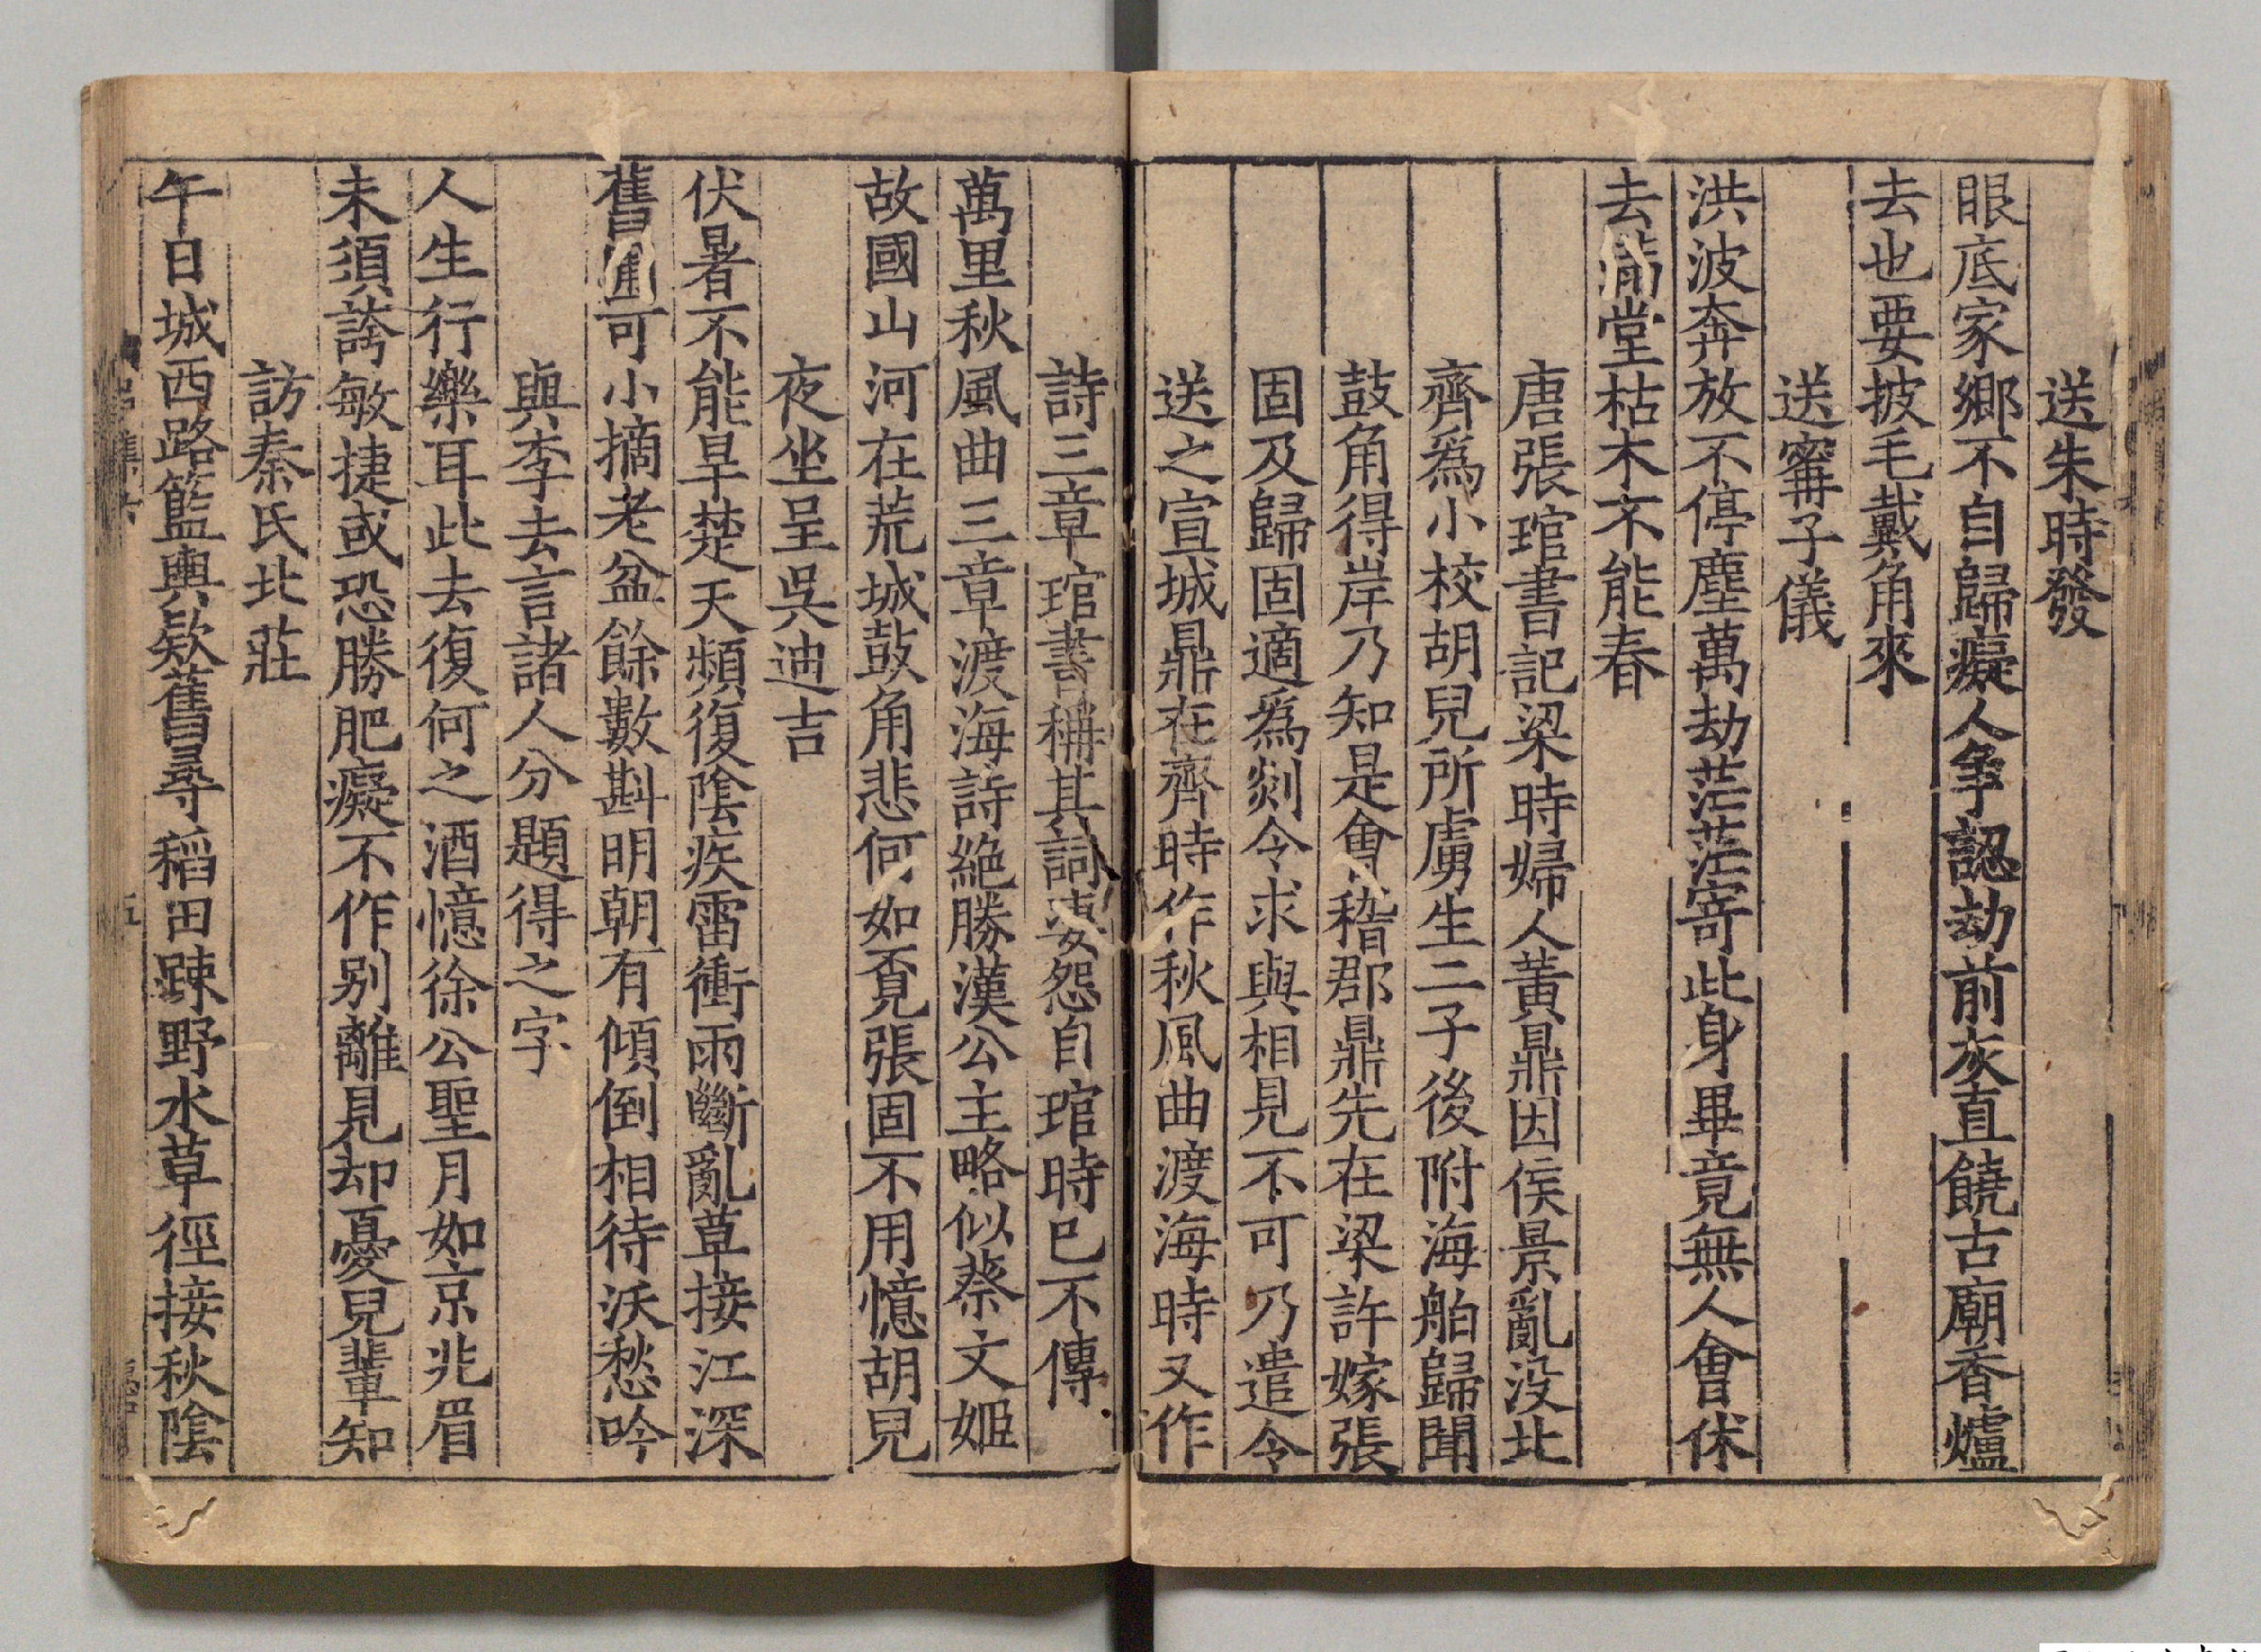 送朱時發
眼底家鄉不自歸癡人爭認劫前灰直饒古廟香爐
去也要披毛戴角來
送甯子儀
洪波奔放不停塵萬劫茫茫寄此身畢竟無人會休
去滿堂枯木不能春
唐張琯書記梁時婦人黃鼎因侯景亂没北
齊爲小校胡兒所虜生二子後附海舶歸聞
鼓角得岸乃知是會稽郡鼎先在梁許嫁張
固及歸固適爲剡令求與相見不可乃遣令
送之宣城鼎在齊時作秋風曲渡海時又作
詩三章琯書稱其詞悽怨自琯時已不傳
萬里秋風曲三章渡海詩絶勝漢公主略似蔡文姬
故國山河在荒城鼓角悲何如覔張固不用憶胡兒
夜坐呈吳迪吉
伏暑不能旱楚天頻復陰疾雷衝雨斷亂草接江深
舊圃可小摘老盆餘數斟明朝有傾倒相待沃愁吟
與李去言諸人分題得之字
人生行樂耳此去復何之酒憶徐公聖月如京兆眉
未須誇敏捷或恐勝肥癡不作别離見却憂兒輩知
訪秦氏北莊
午日城西路籃輿欵舊尋稻田踈野水草徑接秋陰